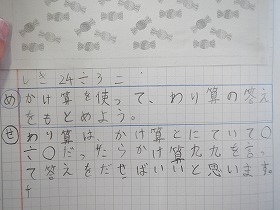 しき 24÷3=
め かけ算を使って、わり算の答え
をもとめよう。
せ わり算は、かけ算とにていて〇
÷〇だったらかけ算九九を言っ
て答えをだせばいいと思います。